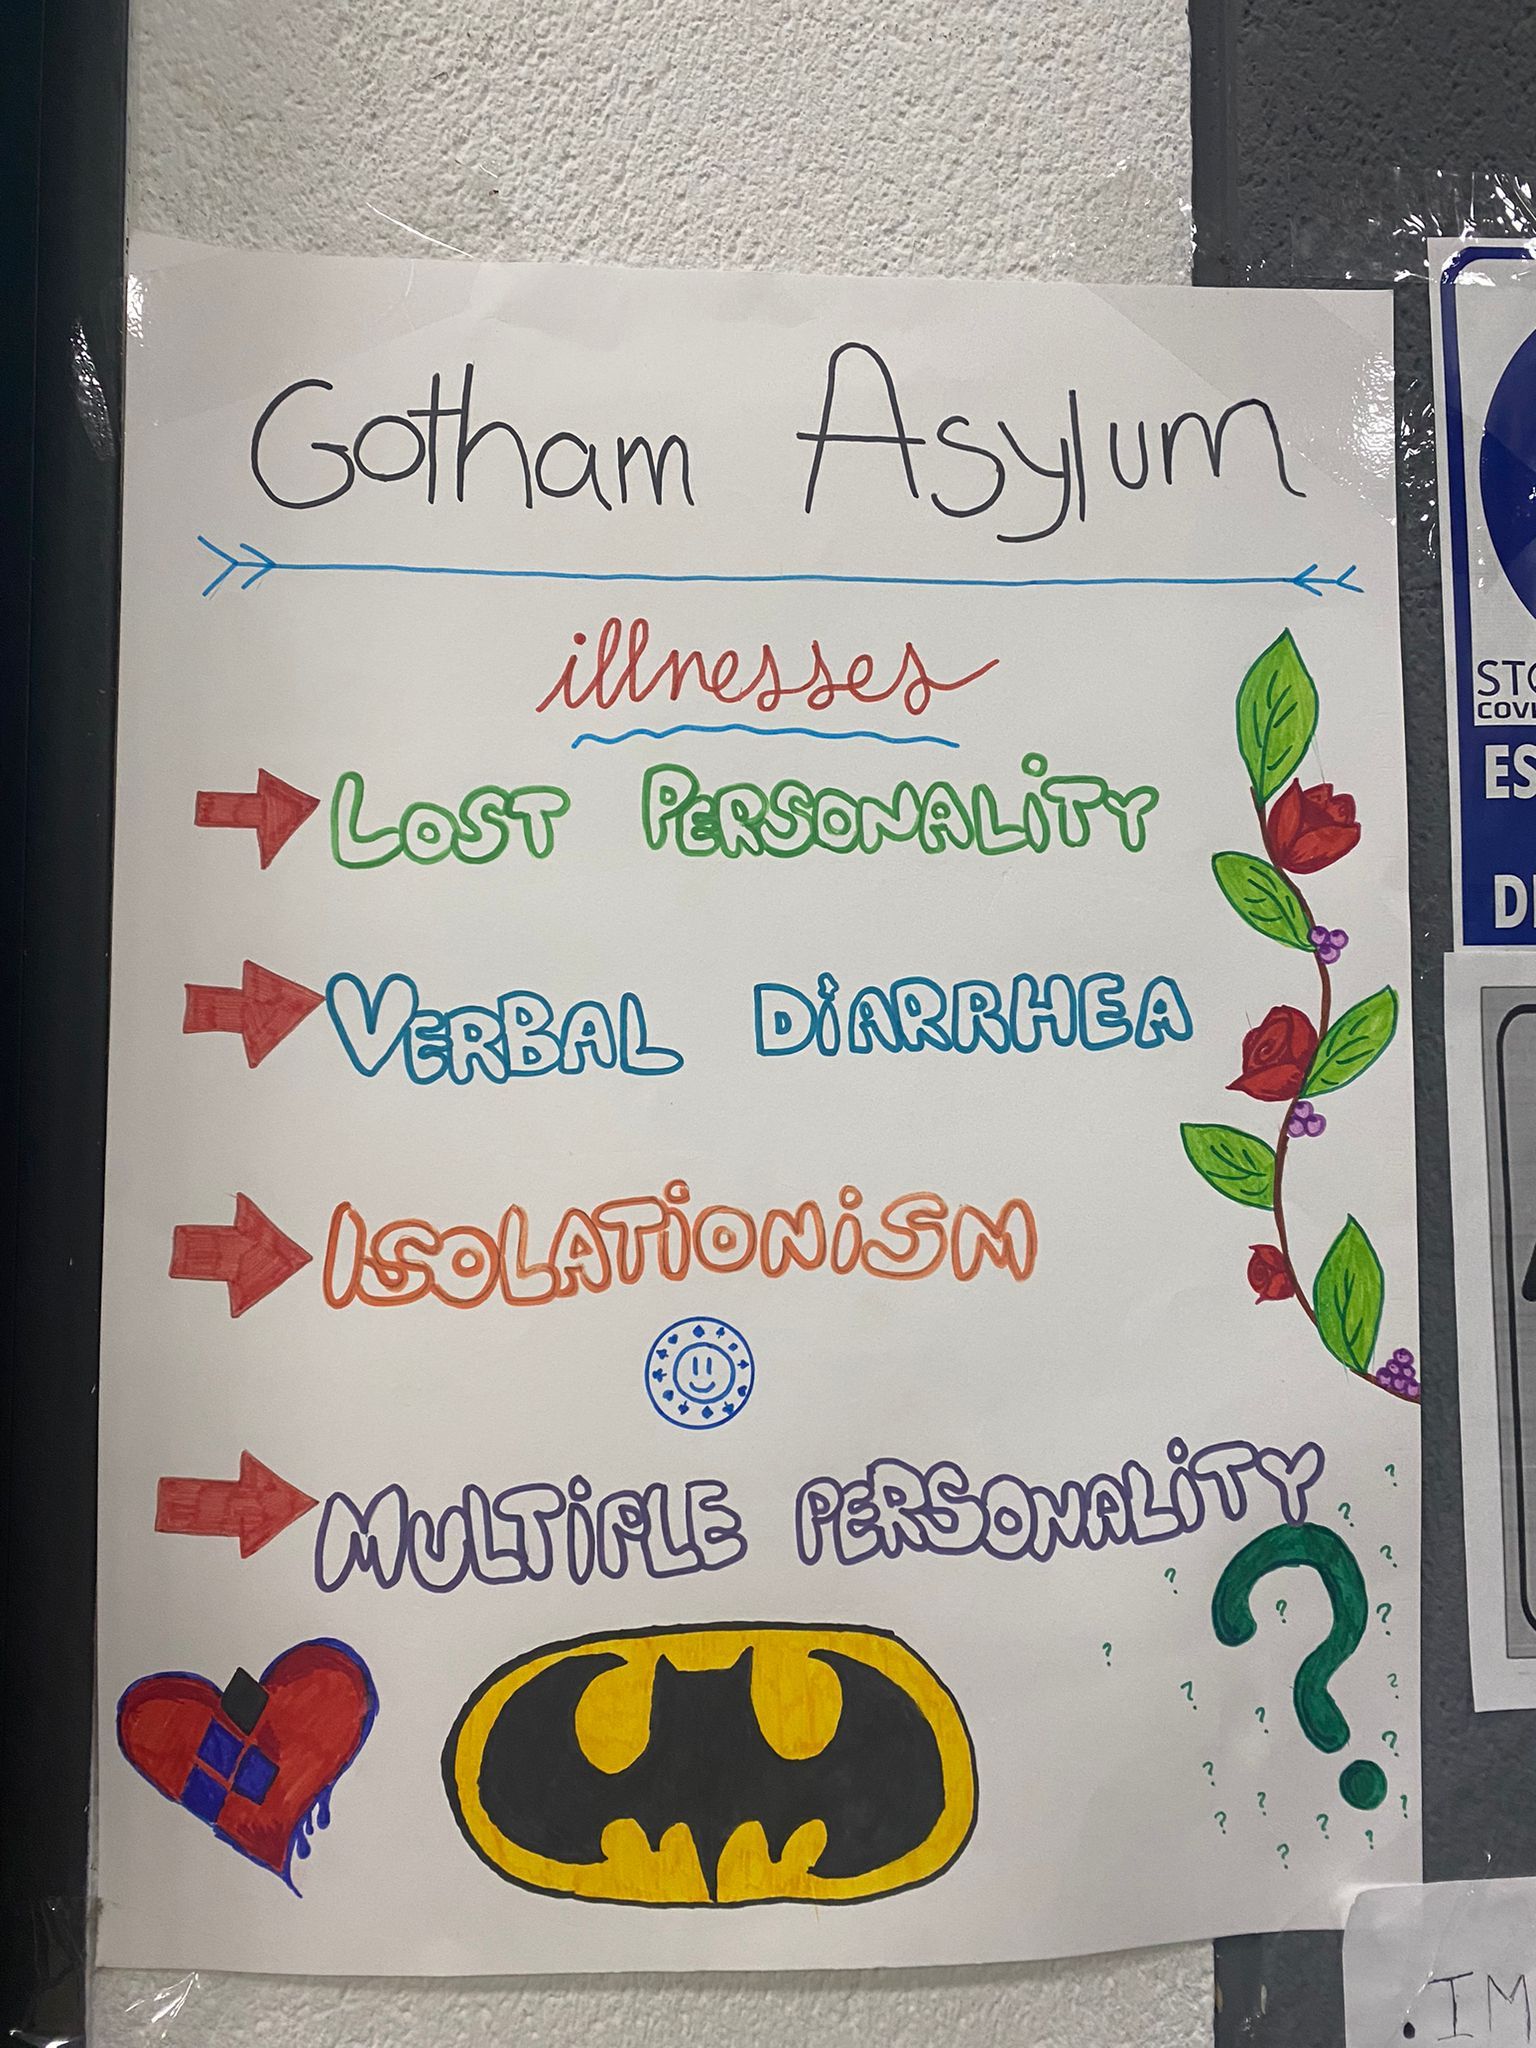 Gotham Asylum
illnesses
LOST PERSONALiTY
VERBAL DiARRHEA
ISOLATiONiSM
MULTiPLE PERSONALiTY
?
STO
COVI
ES
DE
.IM